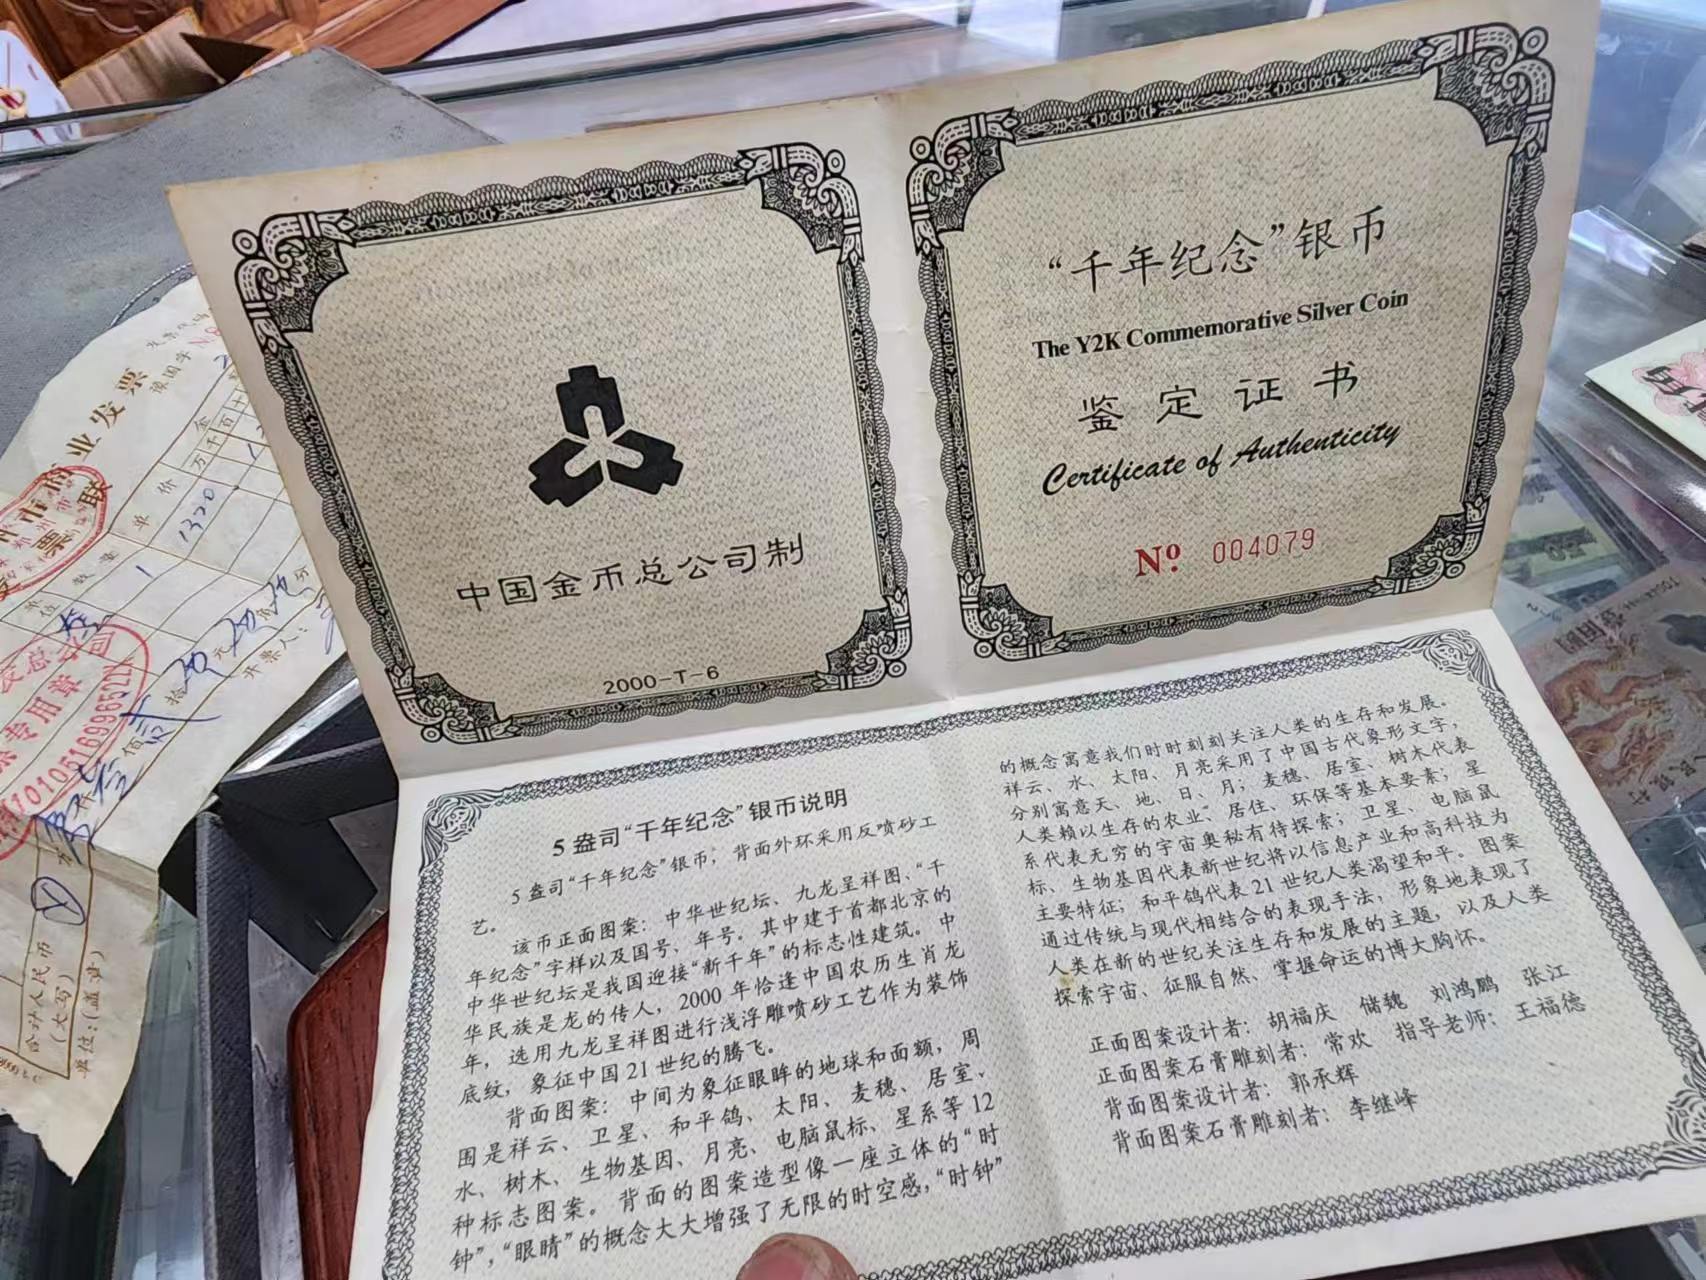 中国金币总公司制
2000-T-6
“千年纪念”银币
The Y2K Commemorative Silver Coin
鉴定证书
Certificate of Authenticity
Nº 004079
5盎司“千年纪念”银币说明
5盎司“千年纪念”银币，背面外环采用反喷砂工
艺。
该币正面图案：中华世纪坛、九龙呈祥图、“千
年纪念”字样以及国号、年号。其中建于首都北京的
中华世纪坛是我国迎接“新千年”的标志性建筑。中
华民族是龙的传人，2000年恰逢中国农历生肖龙
年，选用九龙呈祥图进行浅浮雕喷砂工艺作为装饰
底纹，象征中国21世纪的腾飞。
背面图案：中间为象征眼眸的地球和面额，周
围是祥云、卫星、和平鸽、太阳、麦穗、居室、
水、树木、生物基因、月亮、电脑鼠标、星系等12
种标志图案。背面的图案造型像一座立体的“时
钟”，“眼睛”的概念大大增强了无限的时空感，“时钟”
的概念寓意我们时时刻刻关注人类的生存和发展。
祥云、水、太阳、月亮采用了中国古代象形文字，
分别寓意天、地、日、月；麦穗、居室、树木代表
人类赖以生存的农业、居住、环保等基本要素；星
系代表无穷的宇宙奥秘有待探索；卫星、电脑鼠
标、生物基因代表新世纪将以信息产业和高科技为
主要特征；和平鸽代表21世纪人类渴望和平。图案
通过传统与现代相结合的表现手法，形象地表现了
人类在新的世纪关注生存和发展的主题，以及人类
探索宇宙、征服自然、掌握命运的博大胸怀。
正面图案设计者：胡福庆 储魏 刘鸿鹏 张江
正面图案石膏雕刻者：常欢 指导老师：王福德
背面图案设计者：郭承辉
背面图案石膏雕刻者：李继峰
业发票
单价
数量
1320
1
开票人：
专用章
合计人民币
(大写)
单位:(盖章)